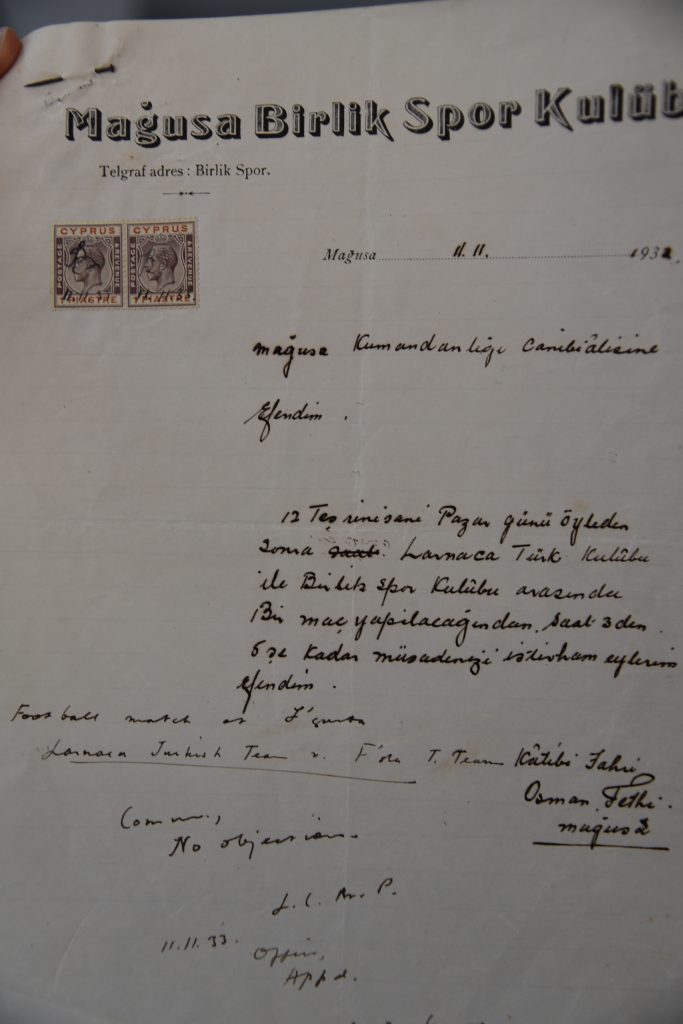 Mağusa Birlik Spor Kulüb
Telgraf adres : Birlik Spor.
CYPRUS CYPRUS
POSTAGE REVENUE POSTAGE REVENUE
1 PIASTRE 1 PIASTRE
11.11.33 11.11.33
Mağusa 11.11. 193
mağusa Kumandanlığı Canibiâlisine
Efendim.
12 Teşrinisani Pazar günü öyleden
Sonra saat. Larnaca Türk Kulübu
ile Birlik spor Kulübu arasında
Bir maç yapılacağından, Saat 3 den
5 şe Kadar müsadenizi istirham eylerim
Efendim.
Football match at F'gusta
Larnaca Turkish Team v. F'sta T. Team
Kâtibi Fahri
Osman Fethi.
mağusa
Comm.,
No objection.
L. C. P.
11.11.33.
Appd.